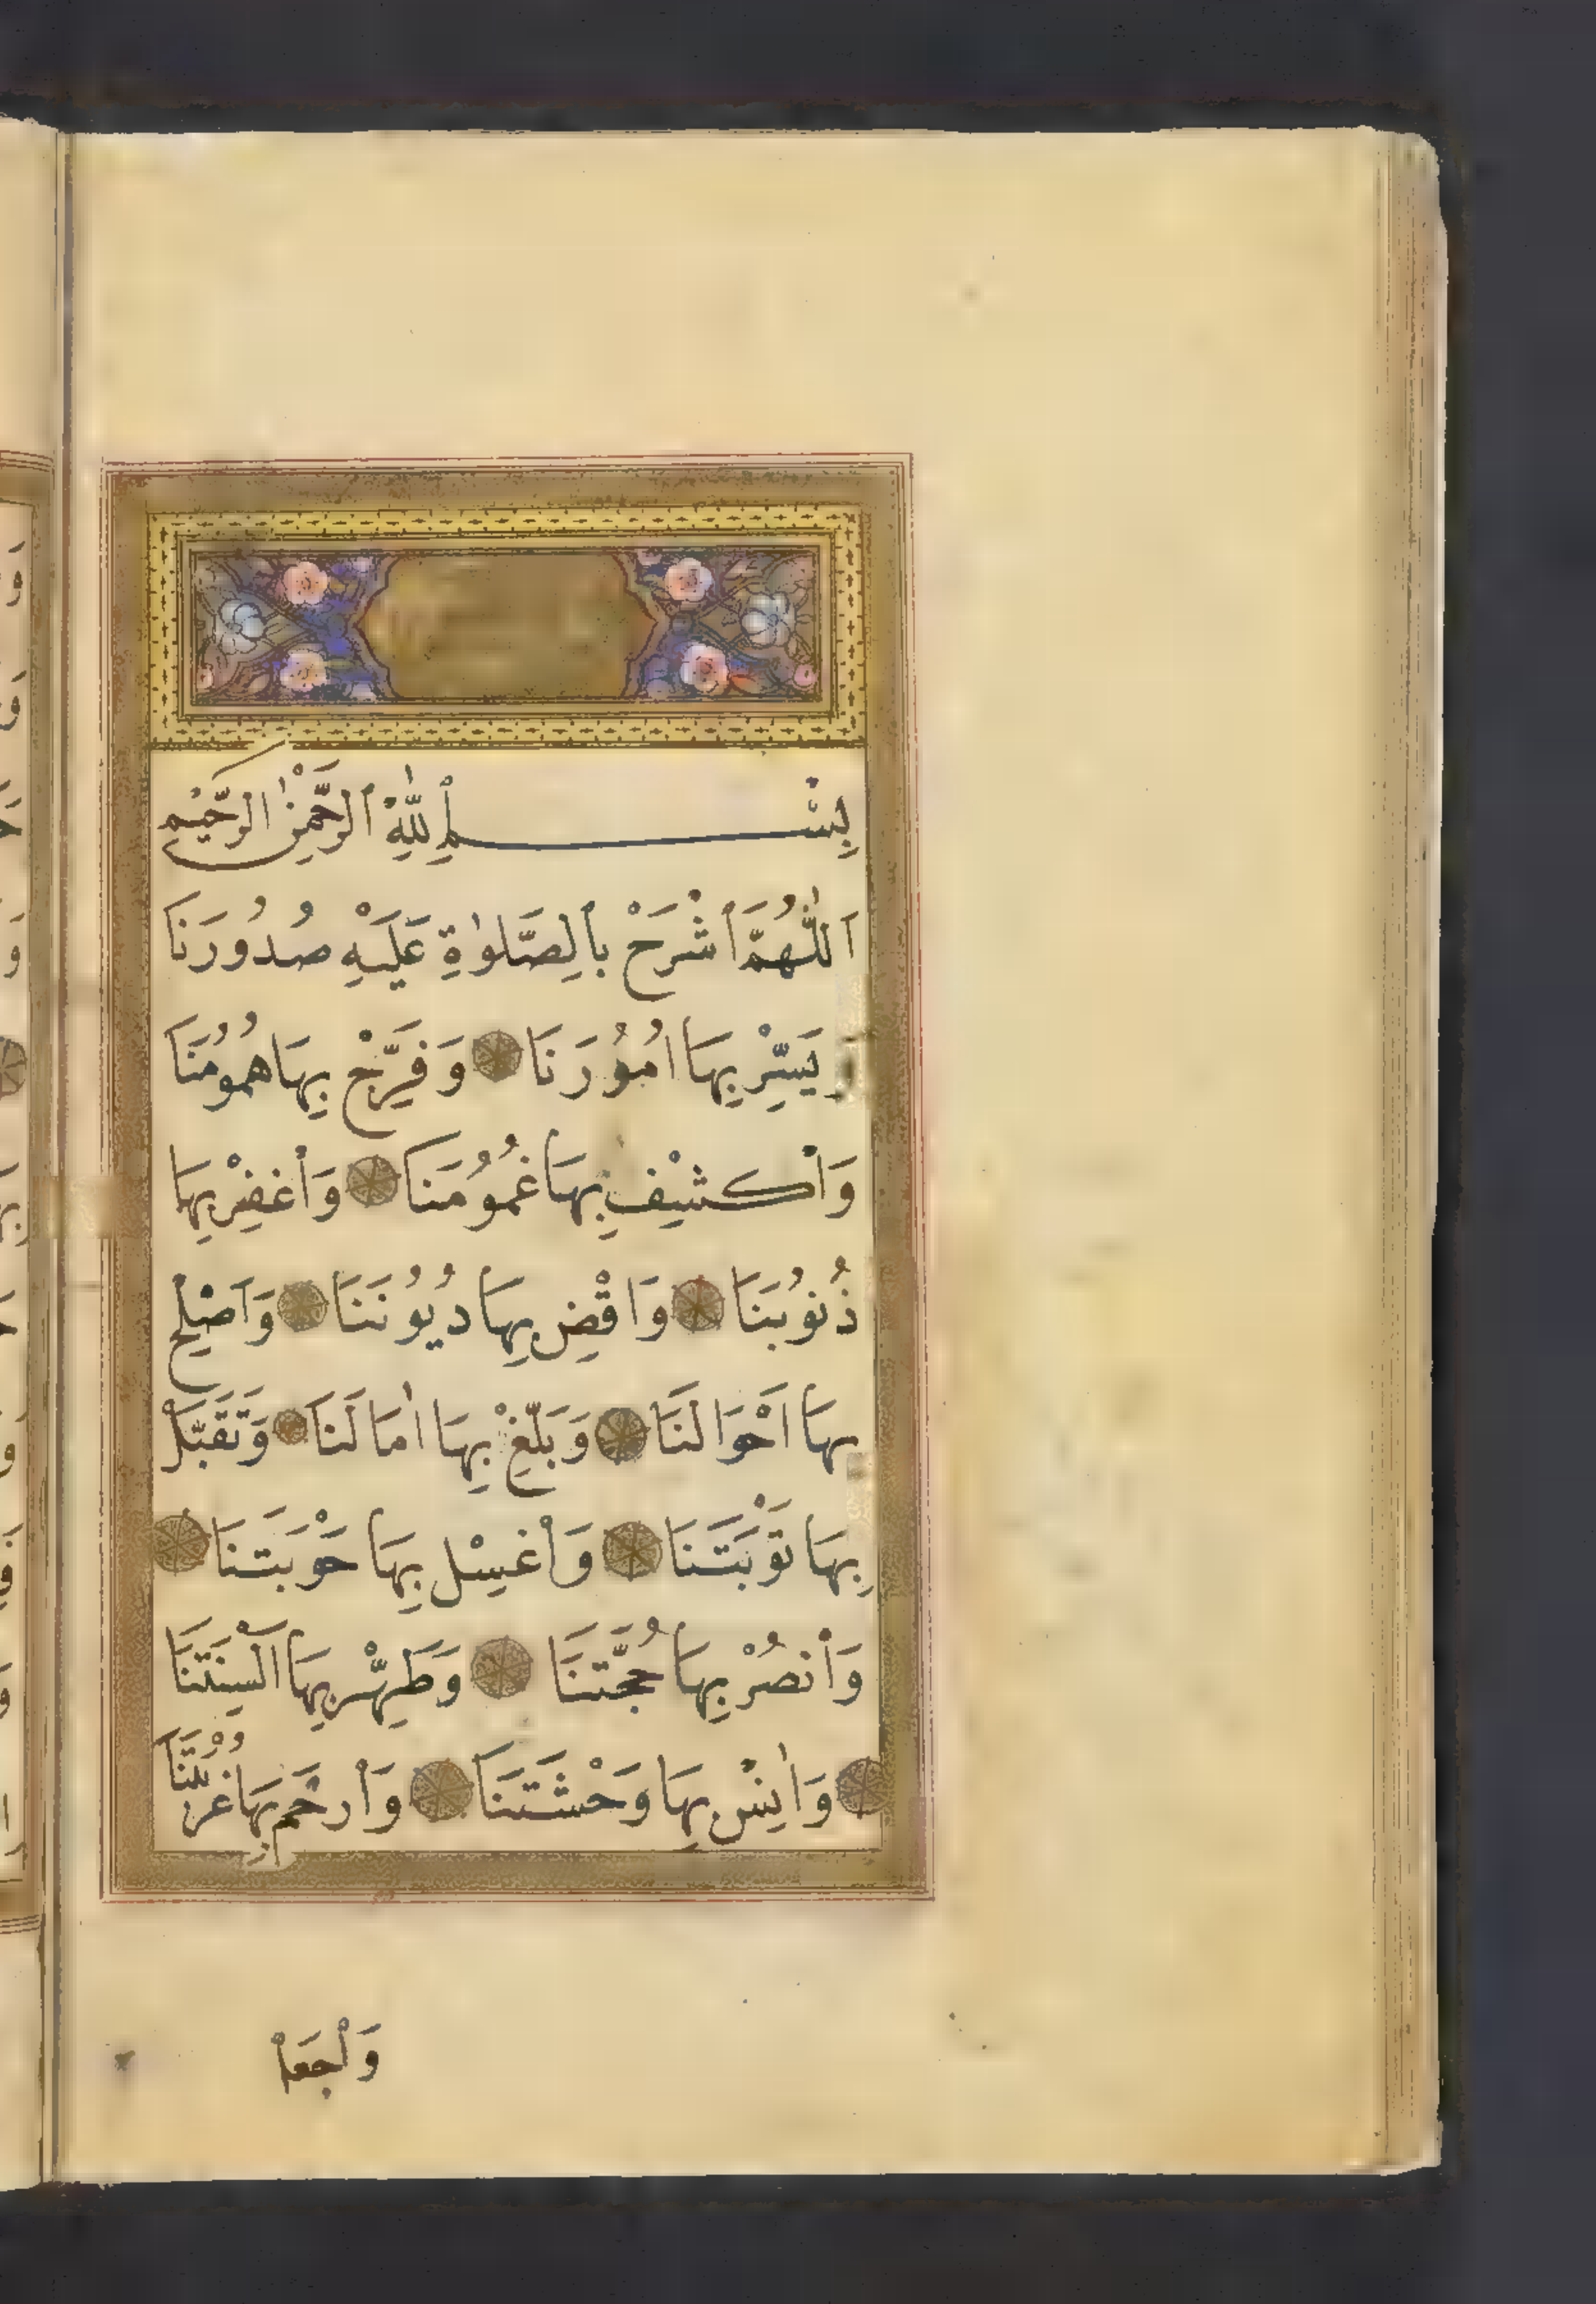 بِسْمِ اللّٰهِ الرَّحْمٰنِ الرَّحِيْمِ
اَللّٰهُمَّ اشْرَحْ بِالصَّلٰوةِ عَلَيْهِ صُدُورَنَا
يَسِّرْ بِهَا اُمُوْرَنَا وَفَرِّجْ بِهَا هُمُومَنَا
وَاكْشِفْ بِهَا غُمُومَنَا وَاغْفِرْ بِهَا
ذُنُوْبَنَا وَاقْضِ بِهَا دُيُوْنَنَا وَاَصْلِحْ
بِهَا اَحْوَالَنَا وَبَلِّغْ بِهَا اٰمَالَنَا وَتَقَبَّلْ
بِهَا تَوْبَتَنَا وَاغْسِلْ بِهَا حَوْبَتَنَا
وَانْصُرْ بِهَا حُجَّتَنَا وَطَهِّرْ بِهَا اَلْسِنَتَنَا
وَاٰنِسْ بِهَا وَحْشَتَنَا وَارْحَمْ بِهَا غُرْبَتَنَا
وَاجْعَلْ